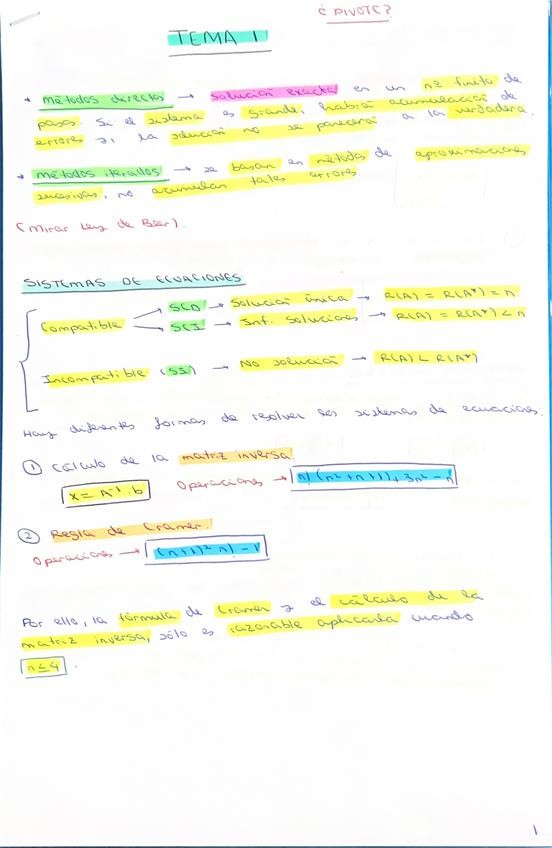 ¿ PIVOTE?
TEMA 1
* métodos directos → solución exacta en un nº finito de
pasos. Si el sistema es grande, habrá acumulación de
errores y, la solución no se parecerá a la verdadera.
* métodos iterados → se basan en métodos de aproximaciones
sucesivas, no acumulan tales errores.
(Mirar Ley de Beer).
SISTEMAS DE ECUACIONES
Compatible → SCD → Solución única → R(A) = R(A*) = n
→ SCI → Inf. Soluciones → R(A) = R(A*) < n
Incompatible (SI) → No solución → R(A) < R(A*)
Hay diferentes formas de resolver los sistemas de ecuaciones:
① Cálculo de la matriz inversa:
x = A⁻¹·b Operaciones → n! (n²+n+1)+3n²-n
② Regla de Cramer:
Operaciones → (n+1)² n! - 1
Por ello, la fórmula de Cramer y el cálculo de la
matriz inversa, sólo es razonable aplicarla cuando
n ≤ 4.
1